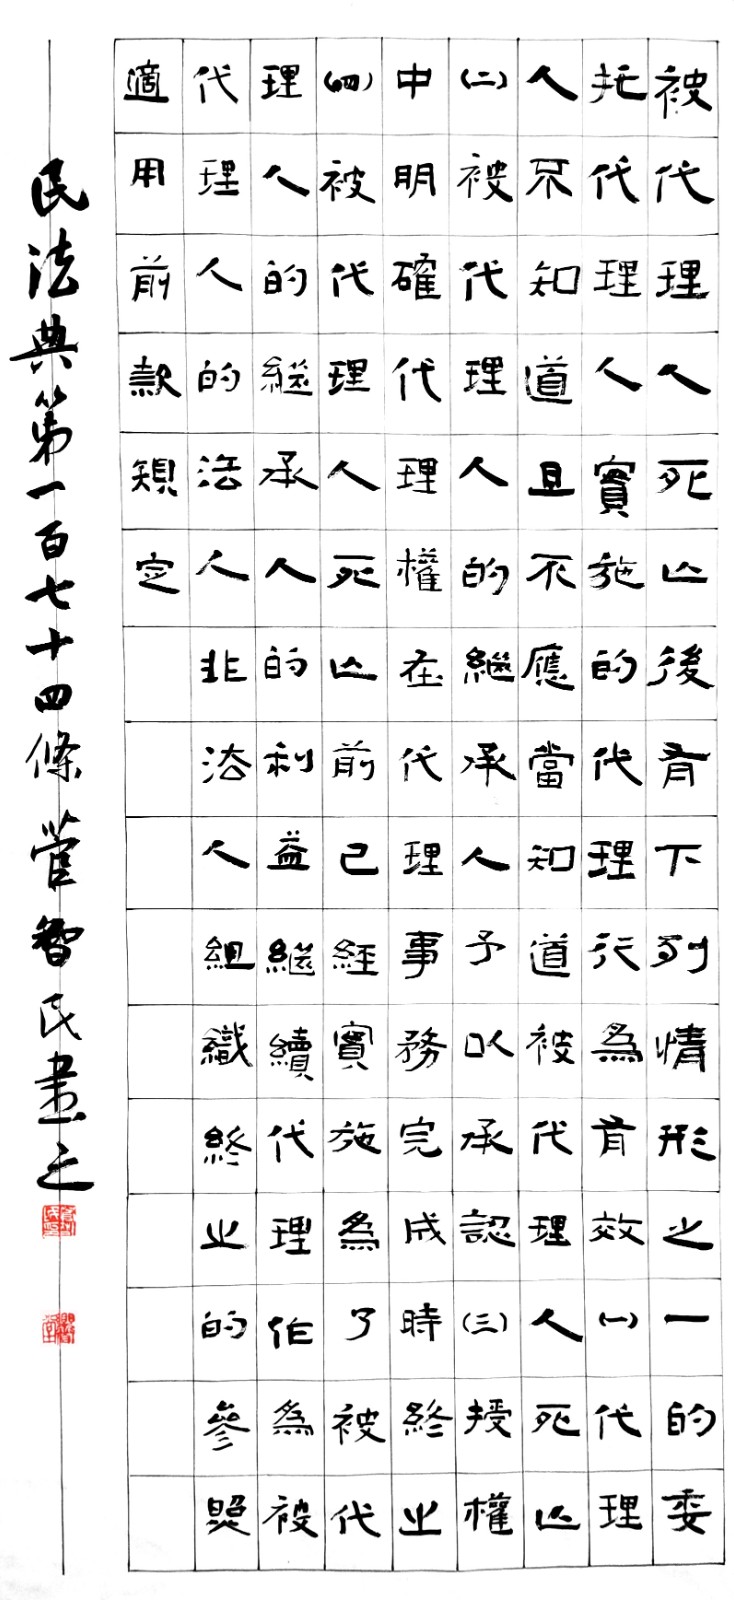 被代理人死亡後有下列情形之一的委
托代理人實施的代理行為有效㈠代理
人不知道且不應當知道被代理人死亡
㈡被代理人的繼承人予以承認㈢授權
中明確代理權在代理事務完成時終止
㈣被代理人死亡前已經實施為了被代
理人的繼承人的利益繼續代理作為被
代理人的法人非法人組織終止的參照
適用前款規定
民法典第一百七十四條管智民書之